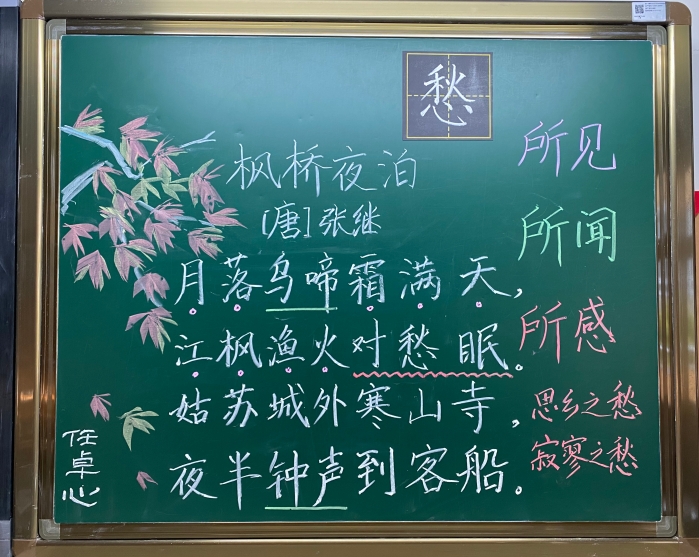 愁
枫桥夜泊
[唐]张继
月落乌啼霜满天，
江枫渔火对愁眠。
姑苏城外寒山寺，
夜半钟声到客船。
所见
所闻
所感
思乡之愁
寂寥之愁
任卓心